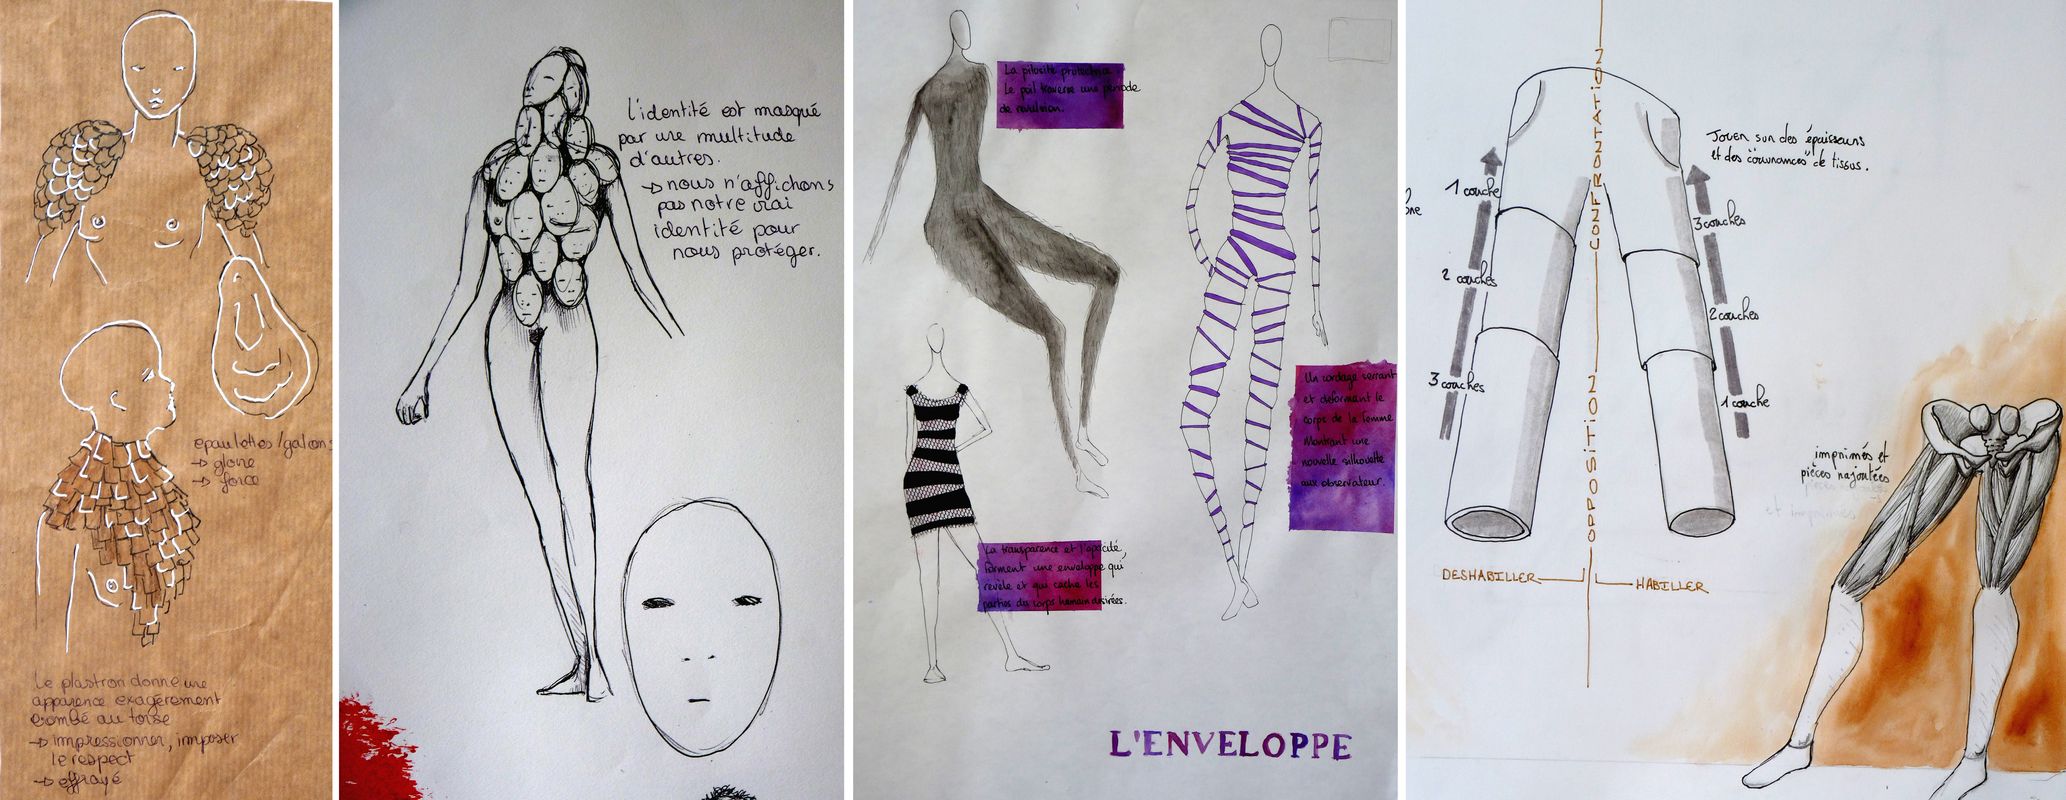 epaulettes/galons
→ gloire
→ force
Le plastron donne une
apparence exagérement
bombé au torse
→ impressionner, imposer
le respect
→ effrayé
l'identité est masqué
par une multitude
d'autres.
→ nous n'affichons
pas notre vrai
identité pour
nous protéger.
La pilosité protectrice.
Le poil traverse une période
de revulsion.
Un cordage serrant
et deformant le
corps de la femme
Montrant une
nouvelle silhouette
aux observateur.
La transparence et l'opacité,
forment une enveloppe qui
révèle et qui cache les
parties du corps humain desirées.
L'ENVELOPPE
OPPOSITION CONFRONTATION
Jouer sur des épaisseurs
et des "couvrances" de tissus.
1 couche
2 couches
3 couches
3 couches
2 couches
1 couche
DESHABILLER
HABILLER
imprimés et
pièces rajoutées
et imprimés